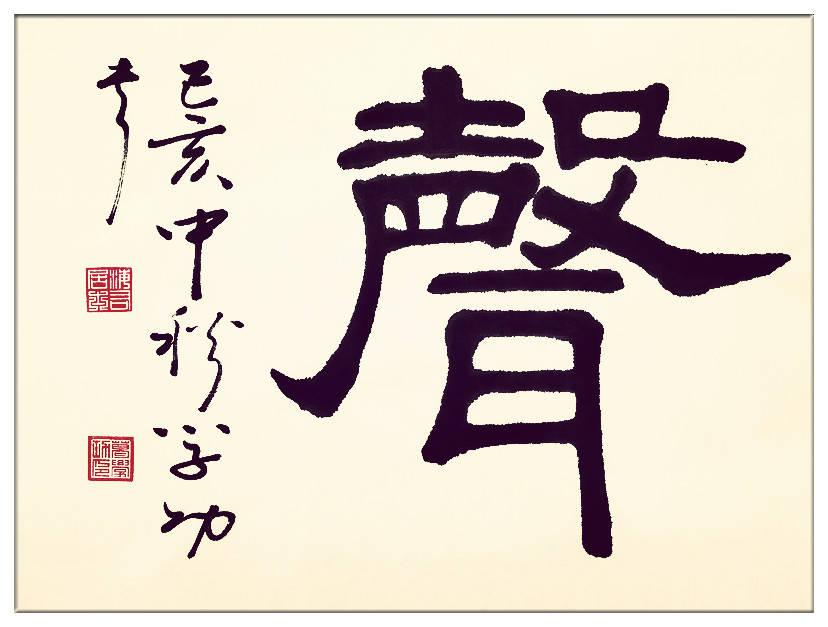 聲
己亥中秋学功
书